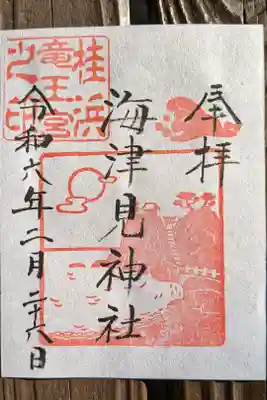 奉拝
海津見神社
令和六年二月二十八日
桂浜
竜王宮
之印